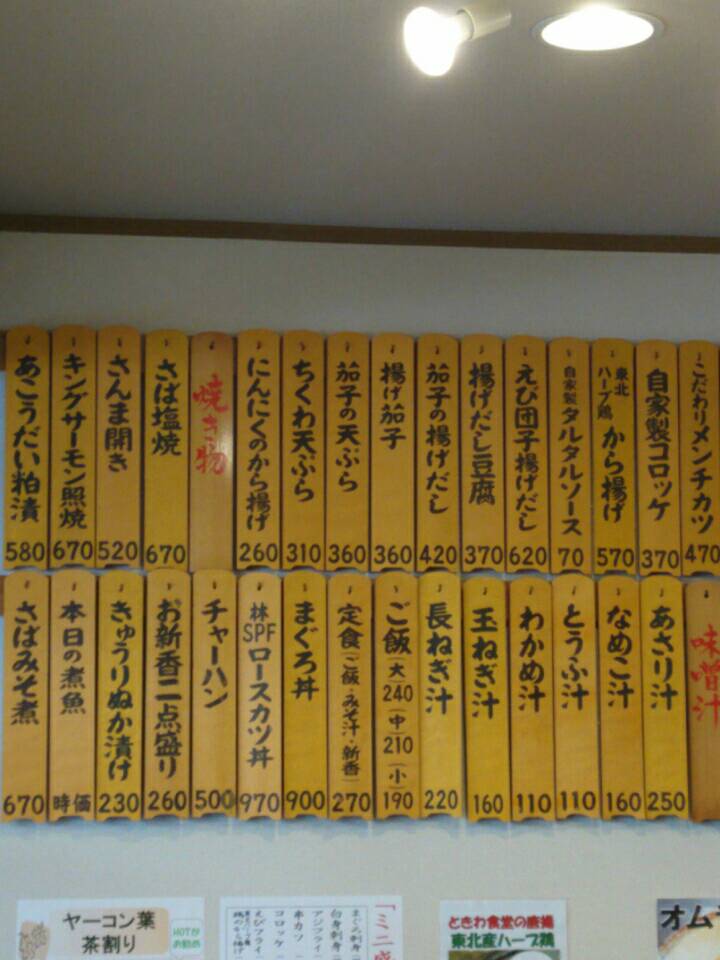 こだわりメンチカツ 470
自家製コロッケ 370
東北ハーブ鶏 から揚げ 570
自家製タルタルソース 70
えび団子揚げだし 620
揚げだし豆腐 370
茄子の揚げだし 420
揚げ茄子 360
茄子の天ぷら 360
ちくわ天ぷら 310
にんにくのから揚げ 260
焼き物
さば塩焼 670
さんま開き 520
キングサーモン照焼 670
あこうだい粕漬 580
味噌汁
あさり汁 250
なめこ汁 160
とうふ汁 110
わかめ汁 110
玉ねぎ汁 160
長ねぎ汁 220
ご飯(大)240(中)210(小)190
定食(ご飯・みそ汁・新香) 270
まぐろ丼 900
林SPFロースカツ丼 970
チャーハン 500
お新香二点盛り 260
きゅうりぬか漬け 230
本日の煮魚 時価
さばみそ煮 670
ヤーコン葉
茶割り
HOTが
お勧め
「ミニ
まぐろ刺身
白身刺身
アジフライ
串カツ
コロッケ
えびフライ
ときわ食堂の唐揚
東北産ハーブ鶏
オム